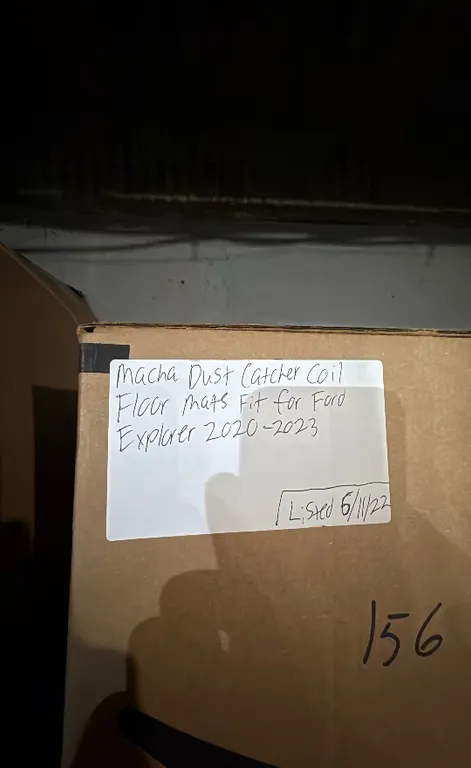 Macha Dust Catcher Coil
Floor Mats Fit for Ford
Explorer 2020-2023
Listed 6/11/22
156